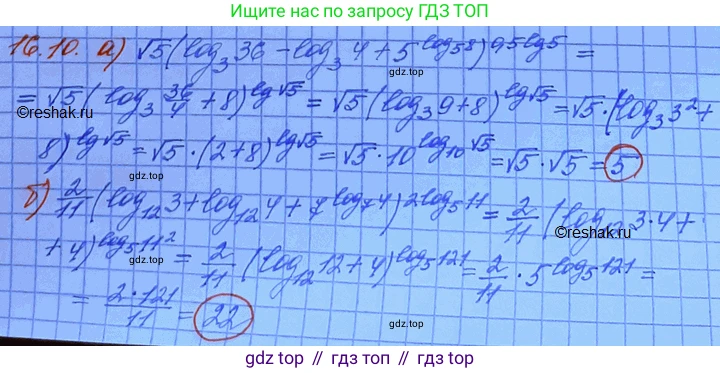 Ищите нас по запросу ГДЗ ТОП
16.10. а) √5(log₃ 36 - log₃ 4 + 5^(log₅8))^(0,5lg5) =
gdz.top
= √5(log₃ 36/4 + 8)^(lg√5) = √5(log₃ 9 + 8)^(lg√5) = √5·(log₃ 3² +
©reshak.ru
8)^(lg√5) = √5·(2+8)^(lg√5) = √5·10^(log₁₀√5) = √5·√5 = 5
gdz.top
б) 2/11 (log₁₂ 3 + log₁₂ 4 + 7^(log₇4))^(2log₅11) = 2/11 (log₁₂ 3·4 +
©reshak.ru
+4)^(log₅11²) = 2/11 (log₁₂ 12 + 4)^(log₅121) = 2/11 · 5^(log₅121) =
gdz.top
= 2·121/11 = 22
gdz.top
gdz.top // гдз топ // gdz.top